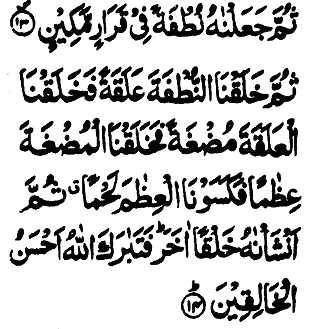 ثُمَّ جَعَلْنٰهُ نُطْفَةً فِیْ قَرَارٍ مَّكِیْنٍ ﴿۱۳﴾
ثُمَّ خَلَقْنَا النُّطْفَةَ عَلَقَةً فَخَلَقْنَا
الْعَلَقَةَ مُضْغَةً فَخَلَقْنَا الْمُضْغَةَ
عِظٰمًا فَكَسَوْنَا الْعِظٰمَ لَحْمًا ۗ ثُمَّ
اَنْشَاْنٰهُ خَلْقًا اٰخَرَ ؕ فَتَبٰرَكَ اللّٰهُ اَحْسَنُ
الْخَالِقِیْنَ ﴿۱۴﴾